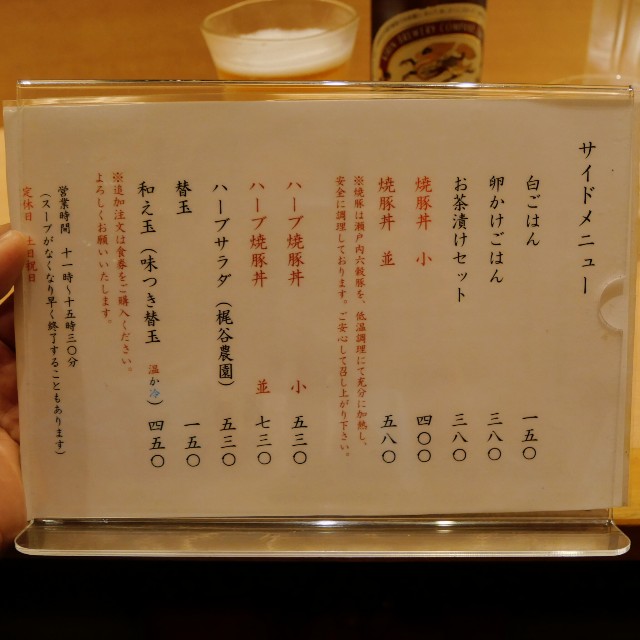 サイドメニュー
白ごはん 一五〇
卵かけごはん 三八〇
お茶漬けセット 三八〇
焼豚丼 小 四〇〇
焼豚丼 並 五八〇
※焼豚は瀬戸内六穀豚を、低温調理にて充分に加熱し、
安全に調理しております。ご安心して召し上がり下さい。
ハーブ焼豚丼 小 五三〇
ハーブ焼豚丼 並 七三〇
ハーブサラダ（梶谷農園） 五三〇
替玉 一五〇
和え玉（味つき替玉 温か冷） 四五〇
※追加注文は食券をご購入ください。
よろしくお願いいたします。
営業時間 十一時〜十五時三〇分
（スープがなくなり早く終了することもあります）
定休日 土日祝日